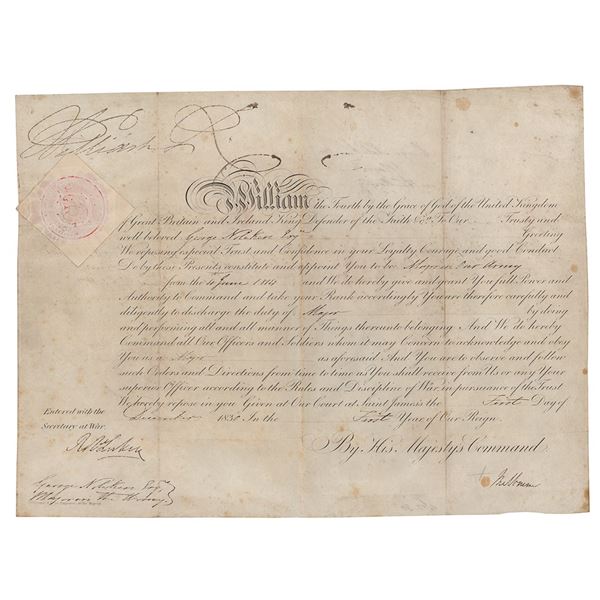 William R
William the Fourth by the Grace of God of the United Kingdom
of Great Britain and Ireland King Defender of the Faith &c. To Our Trusty and
well beloved George Esqr. Greeting
We reposing especial Trust and Confidence in your Loyalty Courage and good Conduct
Do by these Presents constitute and appoint You to be Major in Our Army
from the 4 June 1814 and We do hereby give and grant You full Power and
Authority to Command and take your Rank accordingly You are therefore carefully and
diligently to discharge the duty of Major by doing
and performing all and all manner of Things thereunto belonging And We do hereby
Command all Our Officers and Soldiers whom it may Concern to acknowledge and obey
You as a Major as aforesaid And You are to observe and follow
such Orders and Directions from time to time as You shall receive from Us or any Your
superior Officer according to the Rules and Discipline of War in pursuance of the Trust
We hereby repose in you Given at Our Court at Saint James's the First Day of
December 1830 In the First Year of Our Reign.
Entered with the
Secretary at War.
By His Majesty's Command
George Esqr.
Major in the Army
Melbourne